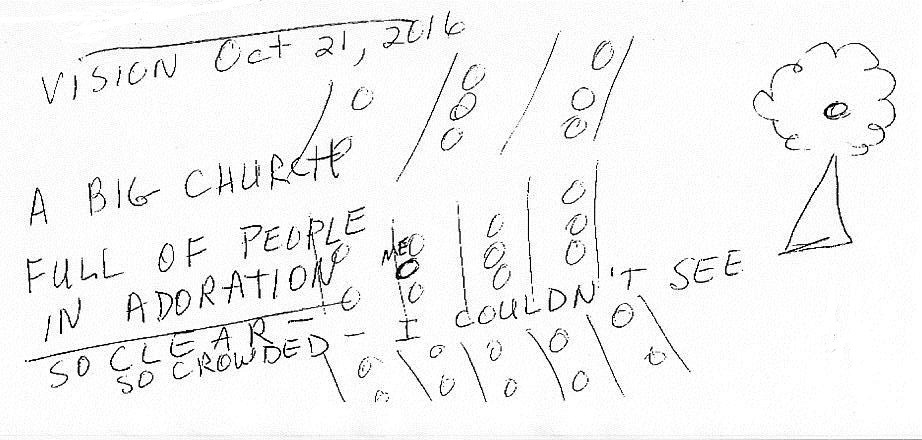 VISION Oct 21, 2016
A BIG CHURCH
FULL OF PEOPLE
ME
IN ADORATION
SO CLEAR - I COULDN'T SEE
SO CROWDED -